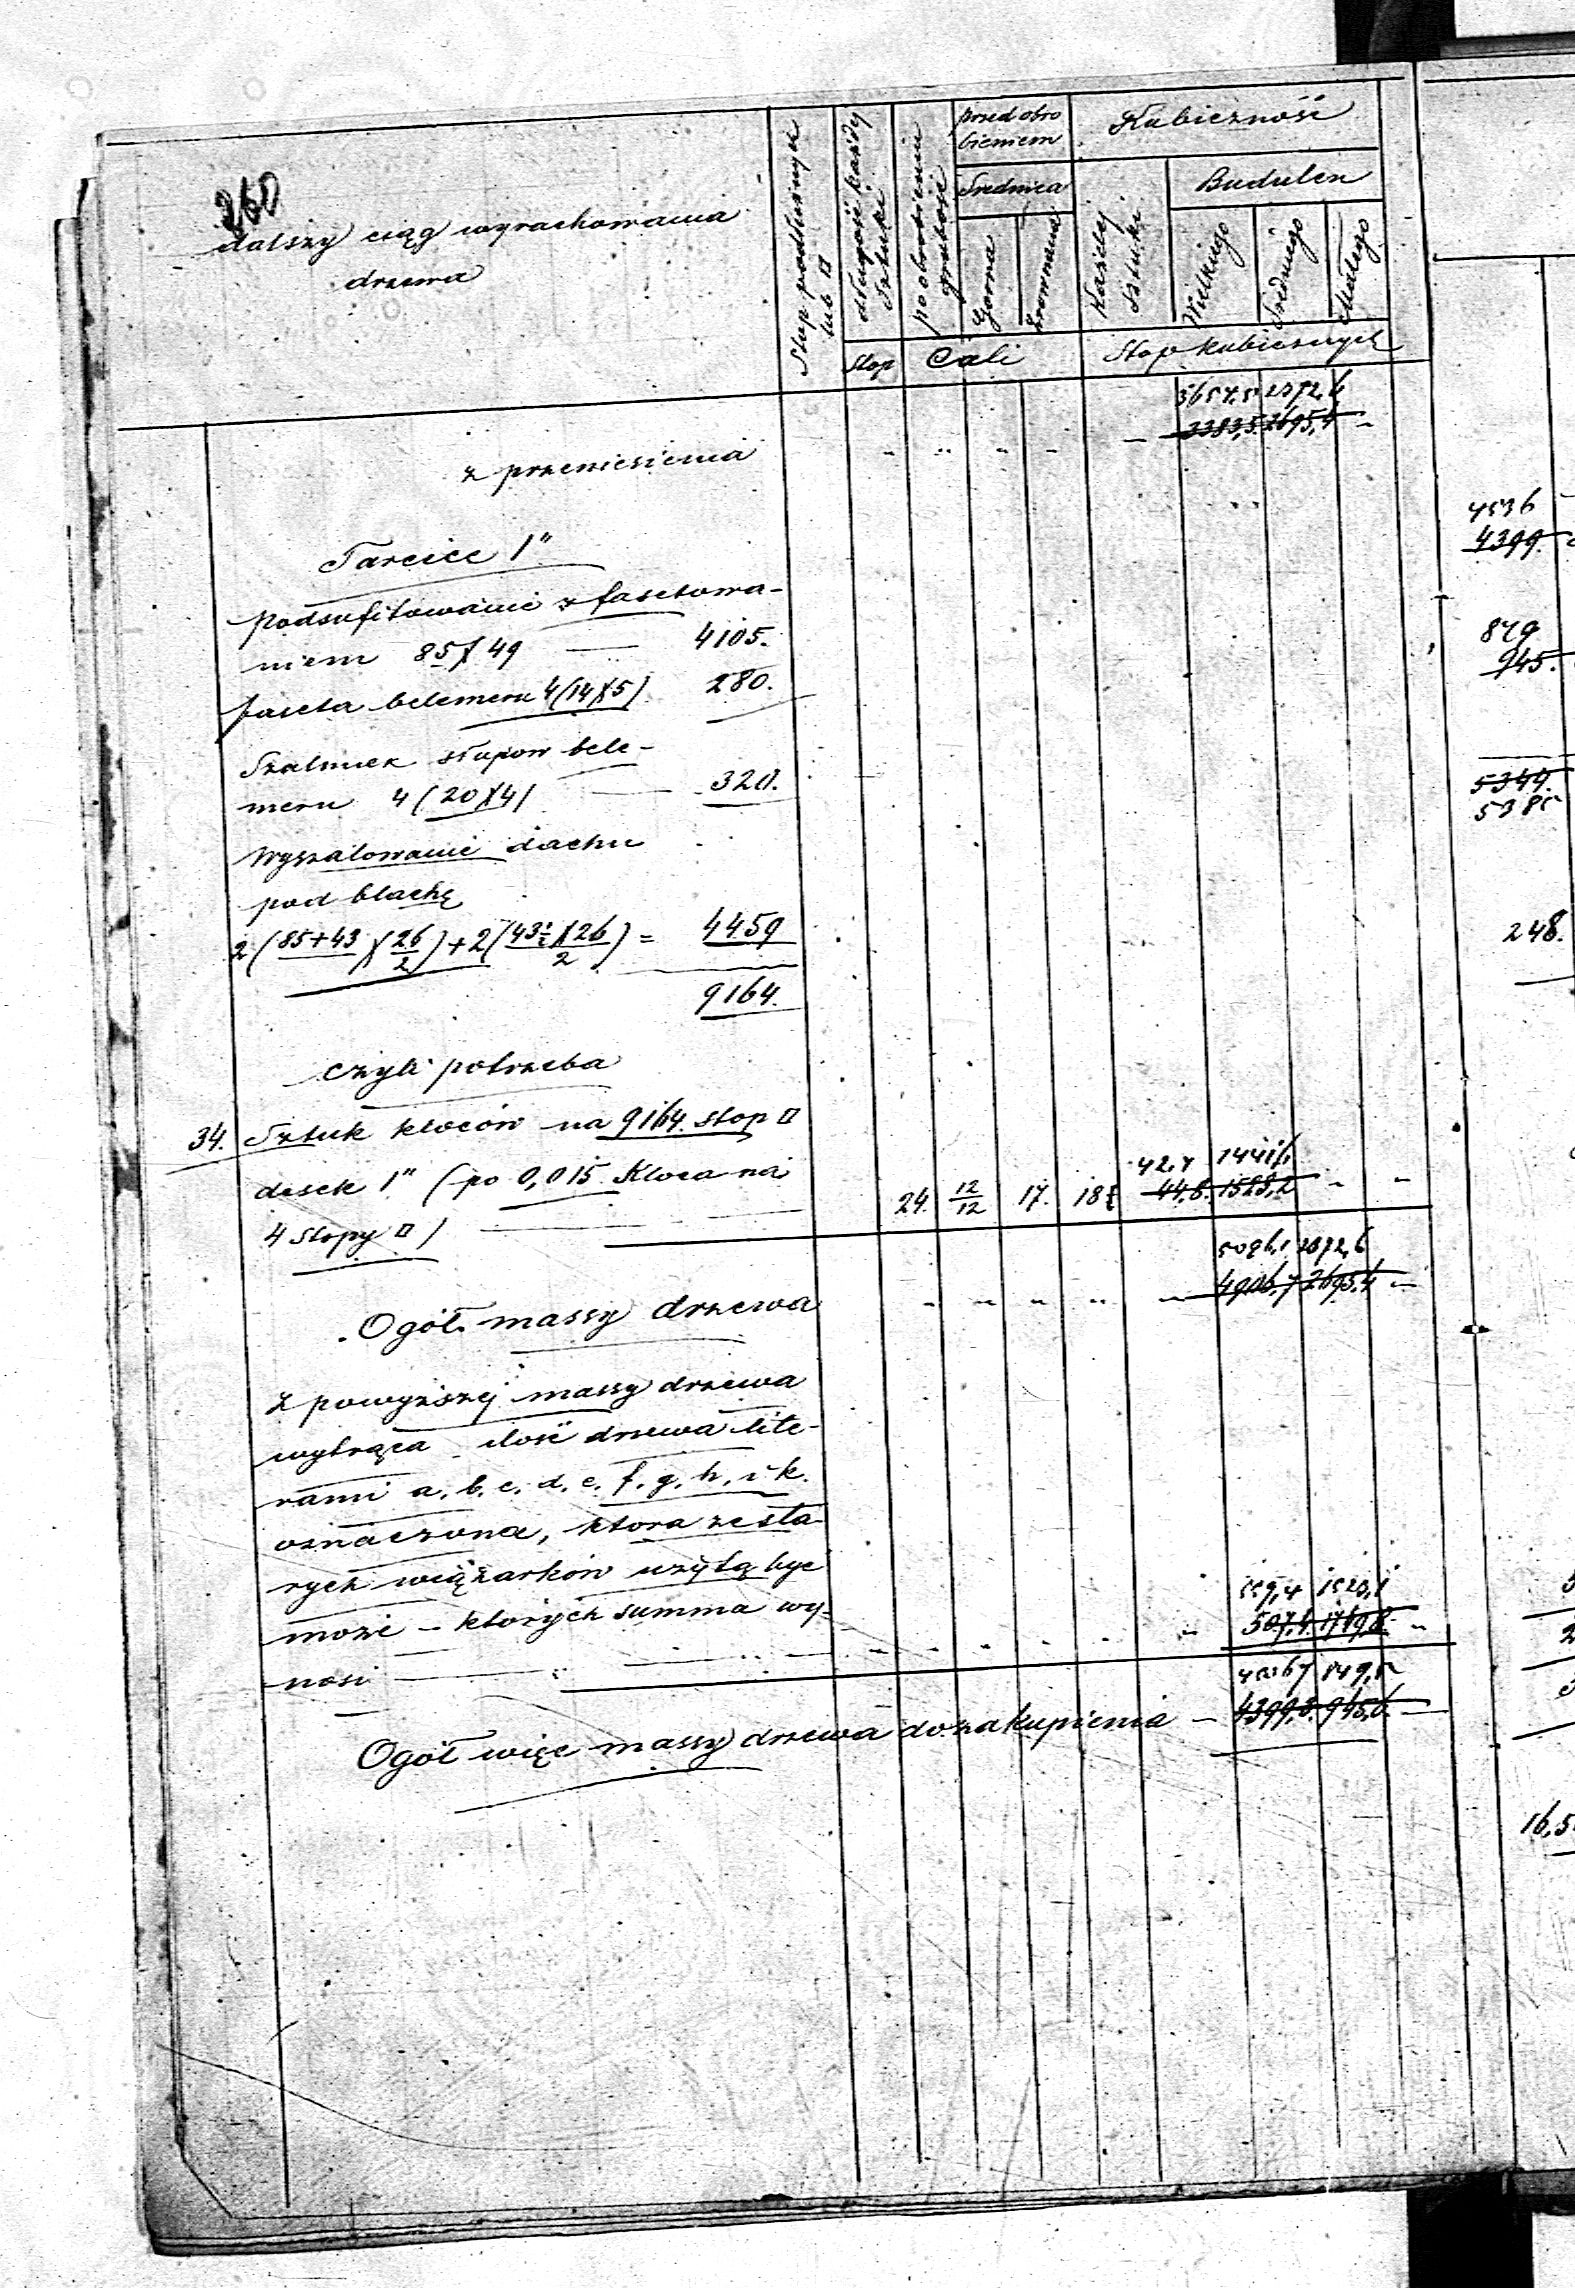 260
dalszy ciąg wyrachowania
drzewa
Stop podłużnych
lub □
długość każdej
Sztuki
po obrobieniu
grubość
przed obro
bieniem
Średnica
Górna
Zrównana
Kubiczność
Każdej
Sztuki
Budulcu
Wielkiego
Średniego
Małego
Stop
Cali
Stop kubicznych
3657,5 2372,6
z przeniesienia - - - - - 3383,5 2695,4 -
Tarcice 1"
podsufitowanie z fasetowa-
niem 85 X 49 — 4105.
faseta belemeru 4(14X5) 280.
Szalunek słupów bele-
meru 4 (20 X 4) — 320.
Wyszalowanie dachu
pod blachę
2 (85+43 X 26/2) + 2 (43½ X 26/2) = 4459
9164.
czyli potrzeba
34. Sztuk kloców na 9164. stop □
desek 1" (po 0,015 Kloca na
42,4 1441,6
4 stopy □) — 24. 12/12 17. 18½ 44,8. 1523,2 - -
5096,1 2372,6
Ogół massy drzewa - - - - - 4906,7 2695,4 -
Z powyższej massy drzewa
wytrąca ilość drzewa lite-
rami a. b. c. d. e. f. g. h. i k.
oznaczona, która ze sta-
rych wiązarków użytą być
może – których summa wy-
559,4 1523,1
nosi — 507,4. 1749,8. -
849,5
Ogół więc massy drzewa do zakupienia — 4399,3. 945,6. —
4536
4399.
849
945.
5344.
5385
248.
16,5